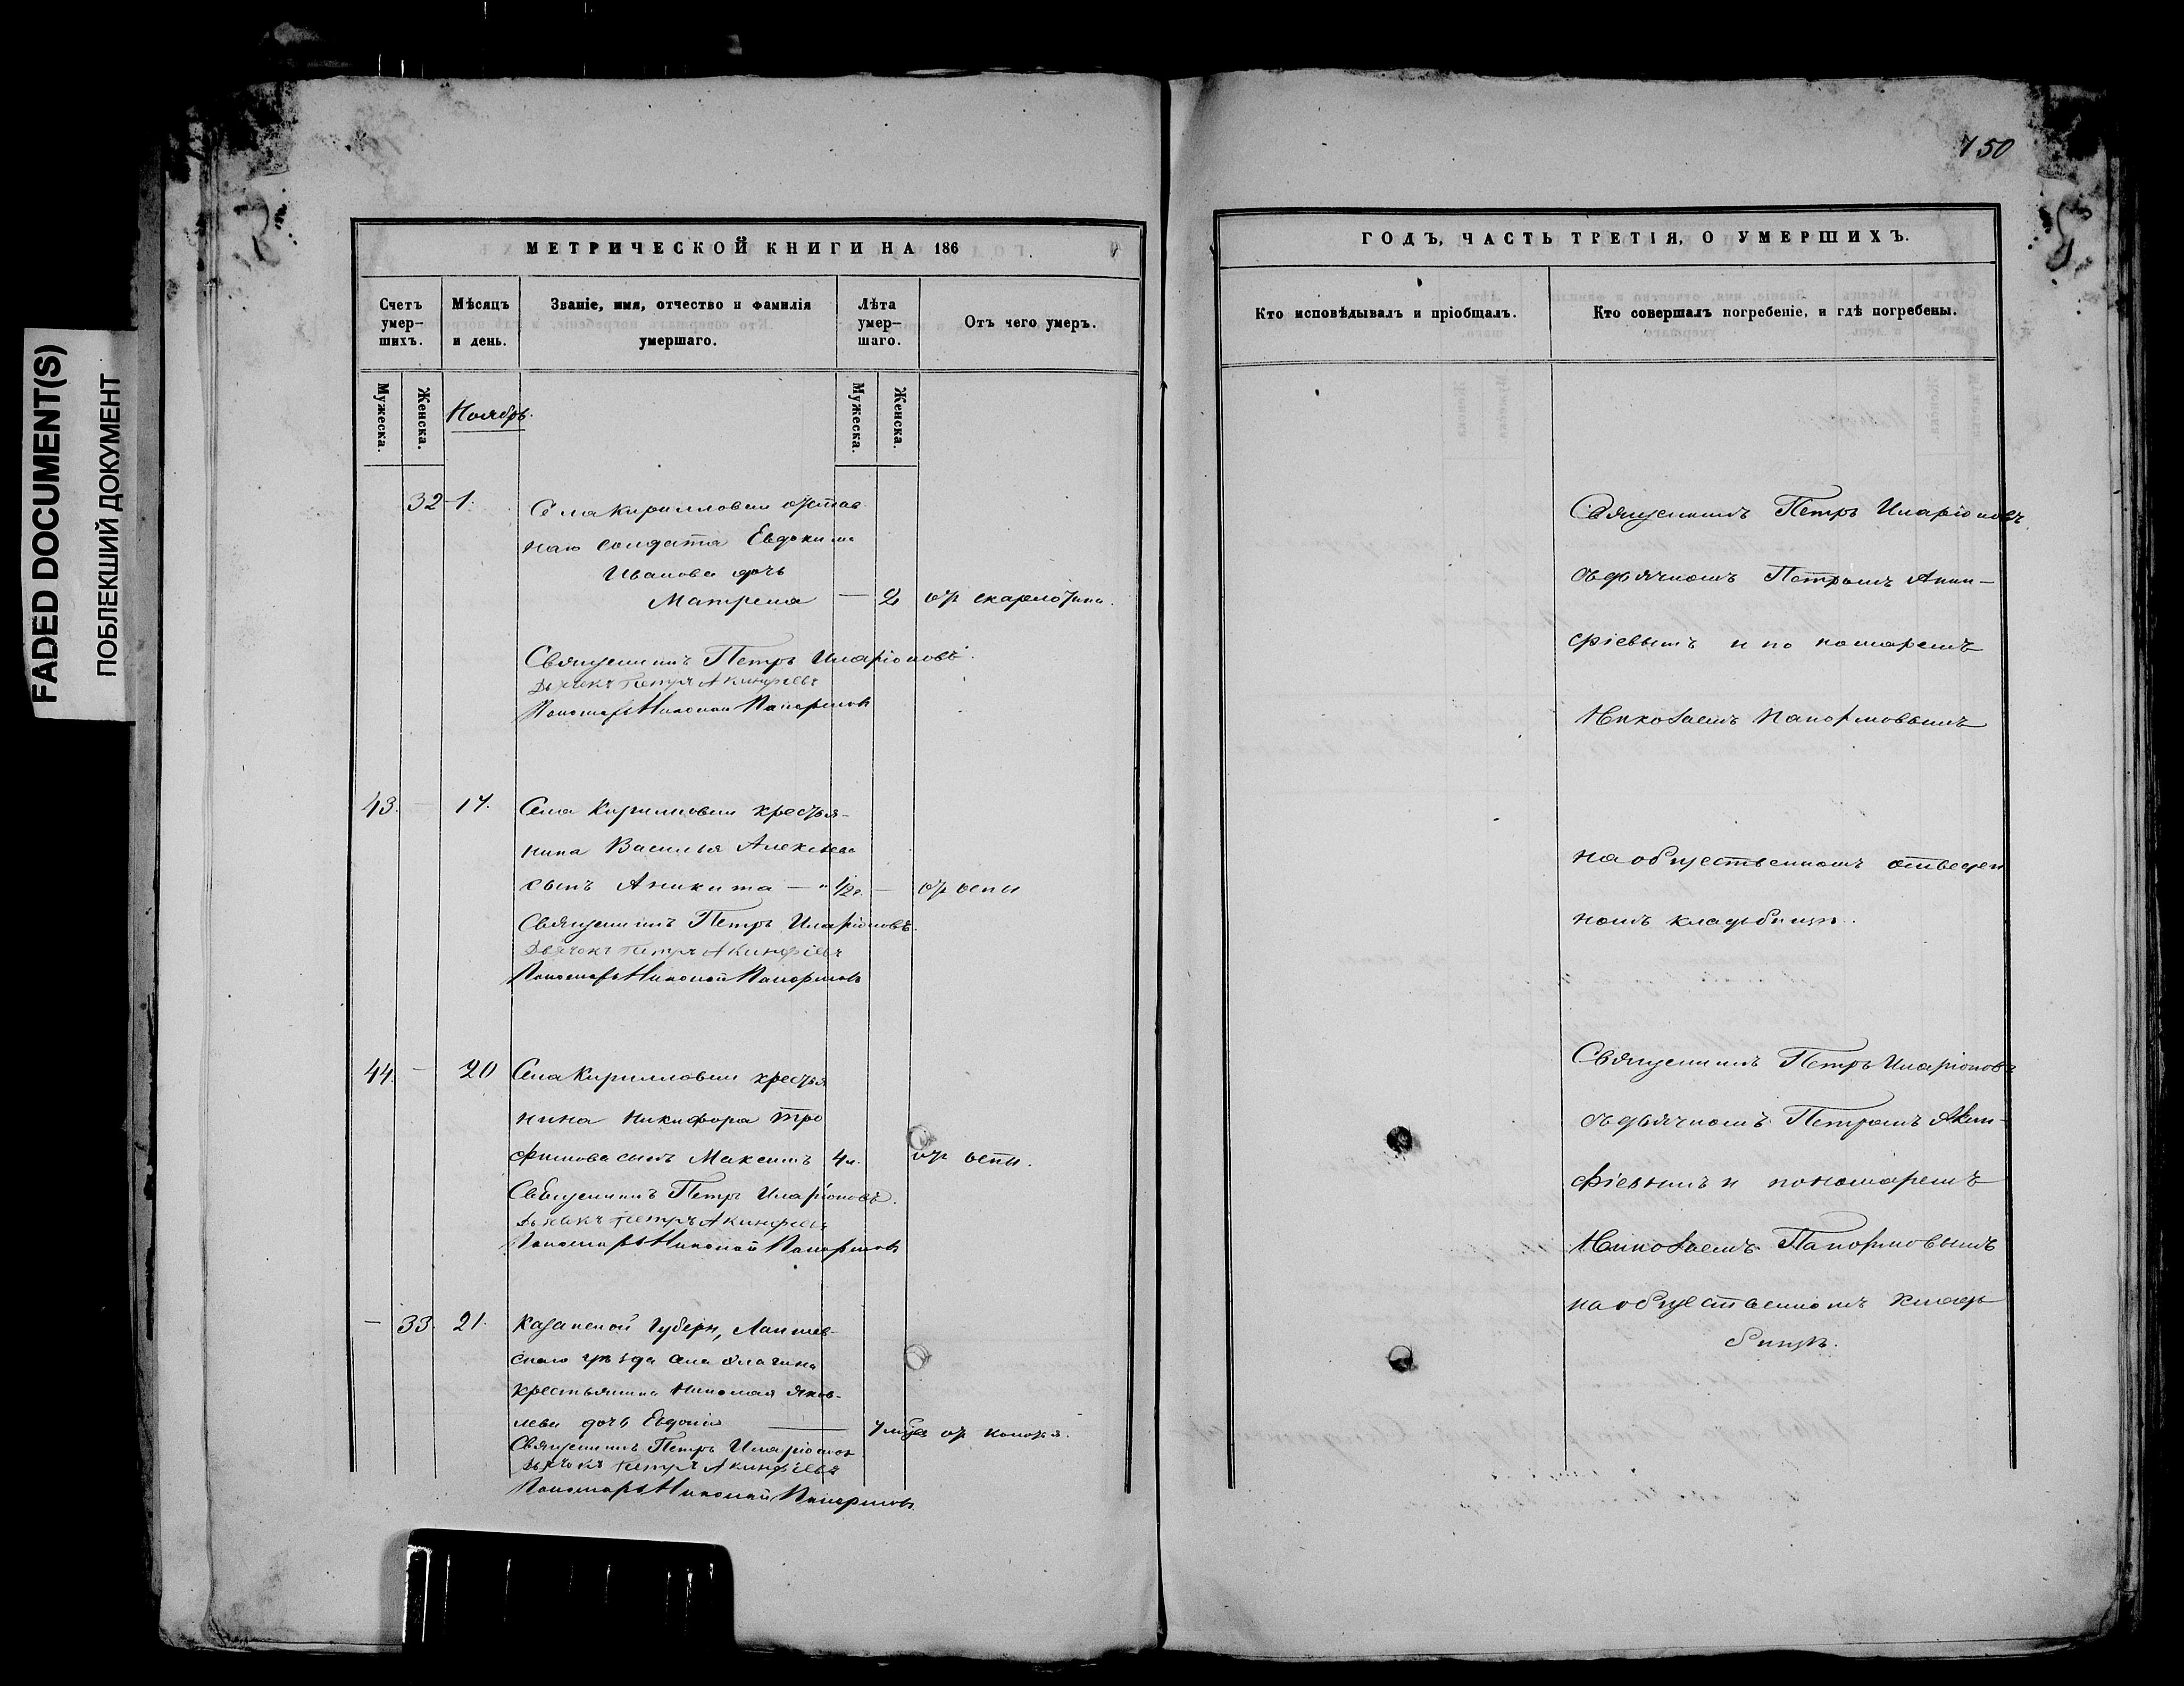 FADED DOCUMENT(S)
ПОБЛЕКШИЙ ДОКУМЕНТ
МЕТРИЧЕСКОЙ КНИГИ НА 186
Счетъ умер-шихъ.
Мѣсяцъ и день.
Званіе, имя, отчество и фамилія умершаго.
Лѣта умер-шаго.
Отъ чего умеръ.
Мужеска.
Женска.
Ноябрь.
Мужеска.
Женска.
32 1. Села Кирилловки отстав
наго солдата Евдокима
Иванова дочь
Матрена — 2 от скарлотины.
Священникъ Петръ Иларіоновъ.
Дьячокъ Петръ Акинфіевъ
Пономарь Николай Папормовъ
43. — 17. Села Кирилловки крестья-
нина Василья Алексѣева
сынъ Аникита — 1/2 г. — от оспы
Священникъ Петръ Иларіоновъ.
Дьячокъ Петръ Акинфіевъ
Пономарь Николай Папормовъ
44. — 20 Села Кирилловки крестья
нина Никифора Тро
фимова сынъ Максимъ 4 л. от оспы.
Священникъ Петръ Иларіоновъ.
Дьячокъ Петръ Акинфіевъ
Пономарь Николай Папормовъ
— 33. 21. Казанской Губерн, Лаишев-
скаго уѣзда села
крестьянина Николая Яков-
лева дочь Евдокія — от
Священникъ Петръ Иларіоновъ
Дьячокъ Петръ Акинфіевъ
Пономарь Николай Папормовъ
750
ГОДЪ, ЧАСТЬ ТРЕТІЯ, О УМЕРШИХЪ.
Кто исповѣдывалъ и пріобщалъ.
Кто совершалъ погребеніе, и гдѣ погребены.
Священникъ Петръ Иларіоновъ
съ дьячкомъ Петромъ Акин-
фіевымъ и пономаремъ
Николаемъ Папормовымъ
на общественномъ отведен
номъ кладбищѣ.
Священникъ Петръ Иларіоновъ
съ дьячкомъ Петромъ Акин-
фіевымъ и пономаремъ
Николаемъ Папормовымъ
на общественномъ клад
бищѣ.